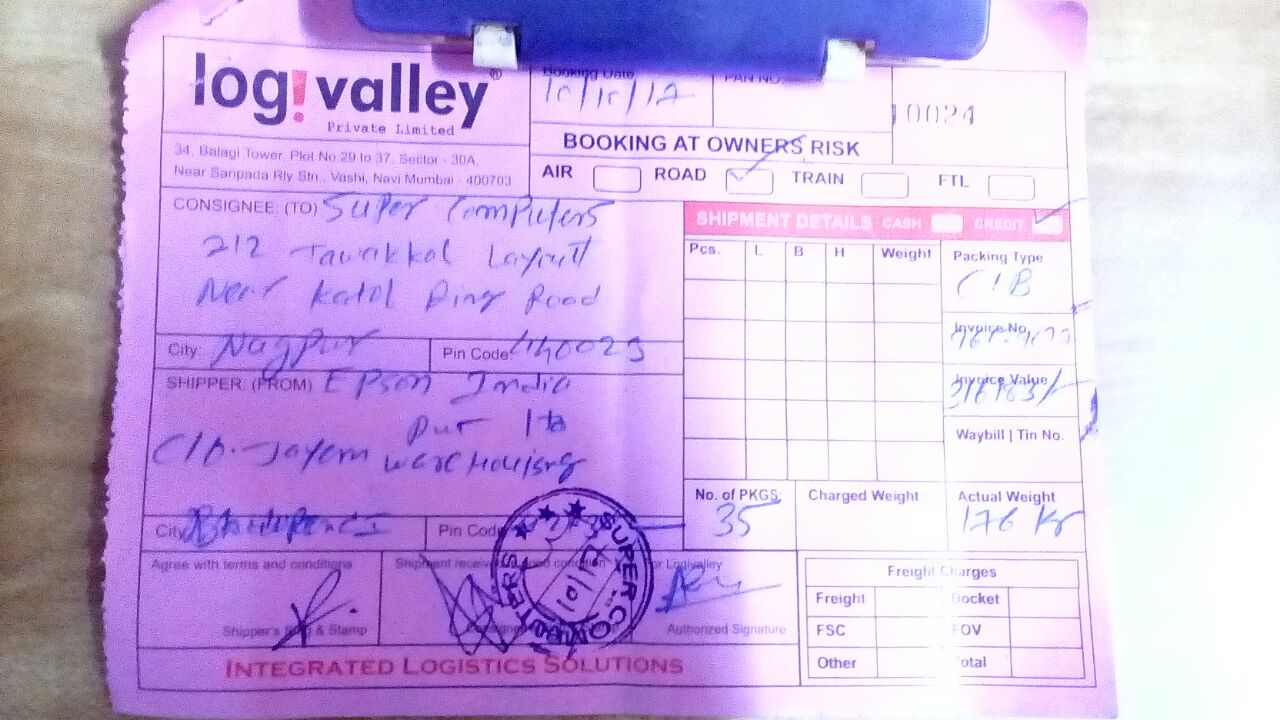 logivalley®
Private Limited
34, Balagi Tower, Plot No.29 to 37, Sector - 30A,
Near Sanpada Rly Stn., Vashi, Navi Mumbai - 400703
Booking Date
10/10/17
PAN NO.
0024
BOOKING AT OWNERS RISK
AIR ROAD TRAIN FTL
CONSIGNEE: (TO) Super Computers
212 Tawakkol Layoutt
Near Katol Ring Road
City: Nagpur Pin Code: 440023
SHIPPER: (FROM) Epson India
Pvt Ltd
C/O. Jayem warehousing
City Pin Code
SHIPMENT DETAILS CASH CREDIT
Pcs. L B H Weight
Packing Type
C/B
Invoice No.
Invoice Value
Waybill | Tin No.
No. of PKGS: 35
Charged Weight :
Actual Weight
176 Kg
Agree with terms and conditions
Shipper's & Stamp
Shipment received condition
For Logivalley
Authorized Signature
SUPER COMPUTERS
Freight Charges
Freight Docket
FSC FOV
Other Total
INTEGRATED LOGISTICS SOLUTIONS